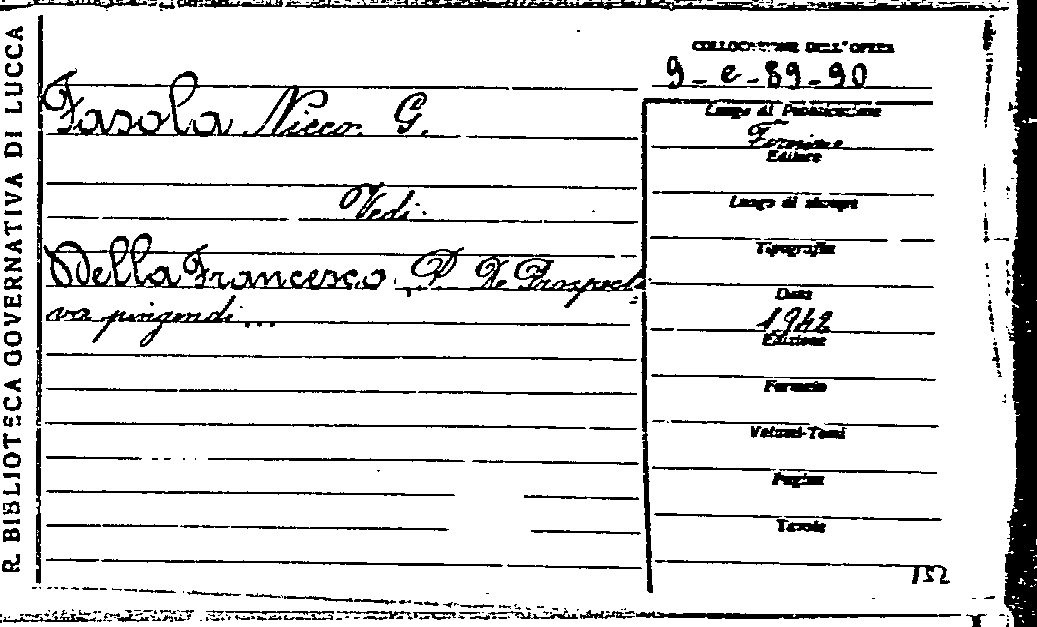 R. BIBLIOTECA GOVERNATIVA DI LUCCA
COLLOCAZIONE DELL'OPERA
9-e-89-90
Fasola Nicco. G.
Vedi:
Della Francesco P. De Prospecti-
va pingendi...
Luogo di Pubblicazione
Firenze
Editore
Luogo di stampa
Tipografia
Data
1942
Edizione
Formato
Volumi-Tomi
Pagine
Tavole
152